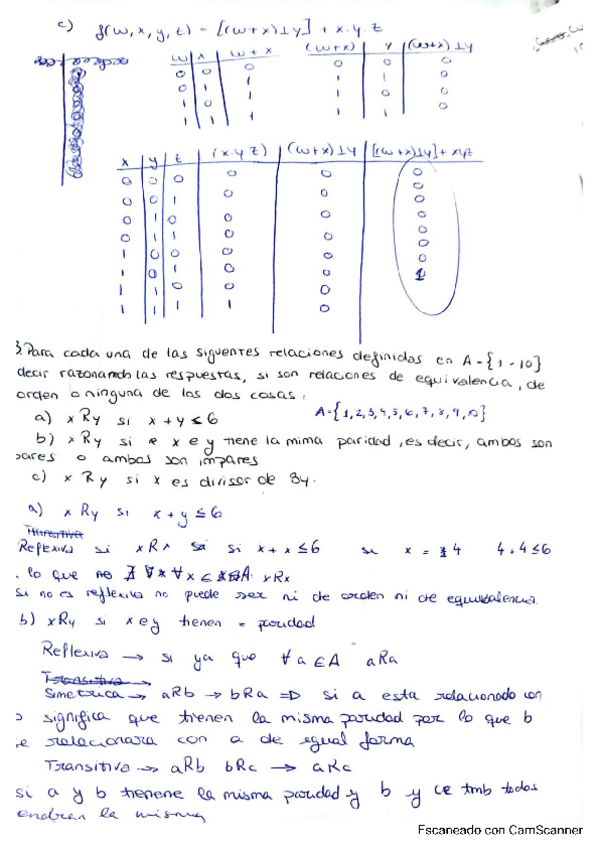 c) f(w,x,y,t) = [(w+x)⊥y] + x.y.z
w x w+x (w+x) y (w+x)⊥y
0 0 0 0 0 0
0 1 1
1 0 1
1 1 1
x y t (x.y z) (w+x)⊥y [(w+x)⊥y]+xyz
0 0 0 0 0 0
0 0 1 0 0 0
0 1 0 0 0 0
0 1 1 0 0 0
1 0 0 0 0 0
1 0 1 0 0 0
1 1 0 0 0 0
1 1 1 1 0 1
3. Para cada una de las siguentes relaciones definidas en A = {1 - 10}
decir razonando las respuestas, si son relaciones de equivalencia, de
orden o ninguna de las dos cosas:
a) xRy si x+y ≤ 6 A={1,2,3,4,5,6,7,8,9,10}
b) xRy si x e y tiene la mima paridad, es decir, ambos son
pares o ambos son impares
c) x Ry si x es divisor de 8y.
a) x Ry si x+y ≤ 6
Transitiva
Reflexiva si xRx si x+x ≤6 si x = 4 4+4≤6
lo que no ∀x ∈ A xRx
si no es reflexiva no puede ser ni de orden ni de equivalencia.
b) xRy si x e y tienen = paridad
Reflexiva → si ya que ∀a∈A aRa
Transitiva
Simetrica → aRb → bRa => si a esta relacionado con
significa que tienen la misma paridad por lo que b
se relacionara con a de egual forma
Transitiva → aRb bRc → aRc
si a y b tienene la misma paridad y b y c tmb todos
tendran la misma
Escaneado con CamScanner